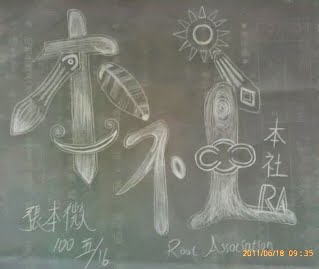 本社
本
社
RA
張本微
100 五/16
Root Association
2011/06/18 09:35